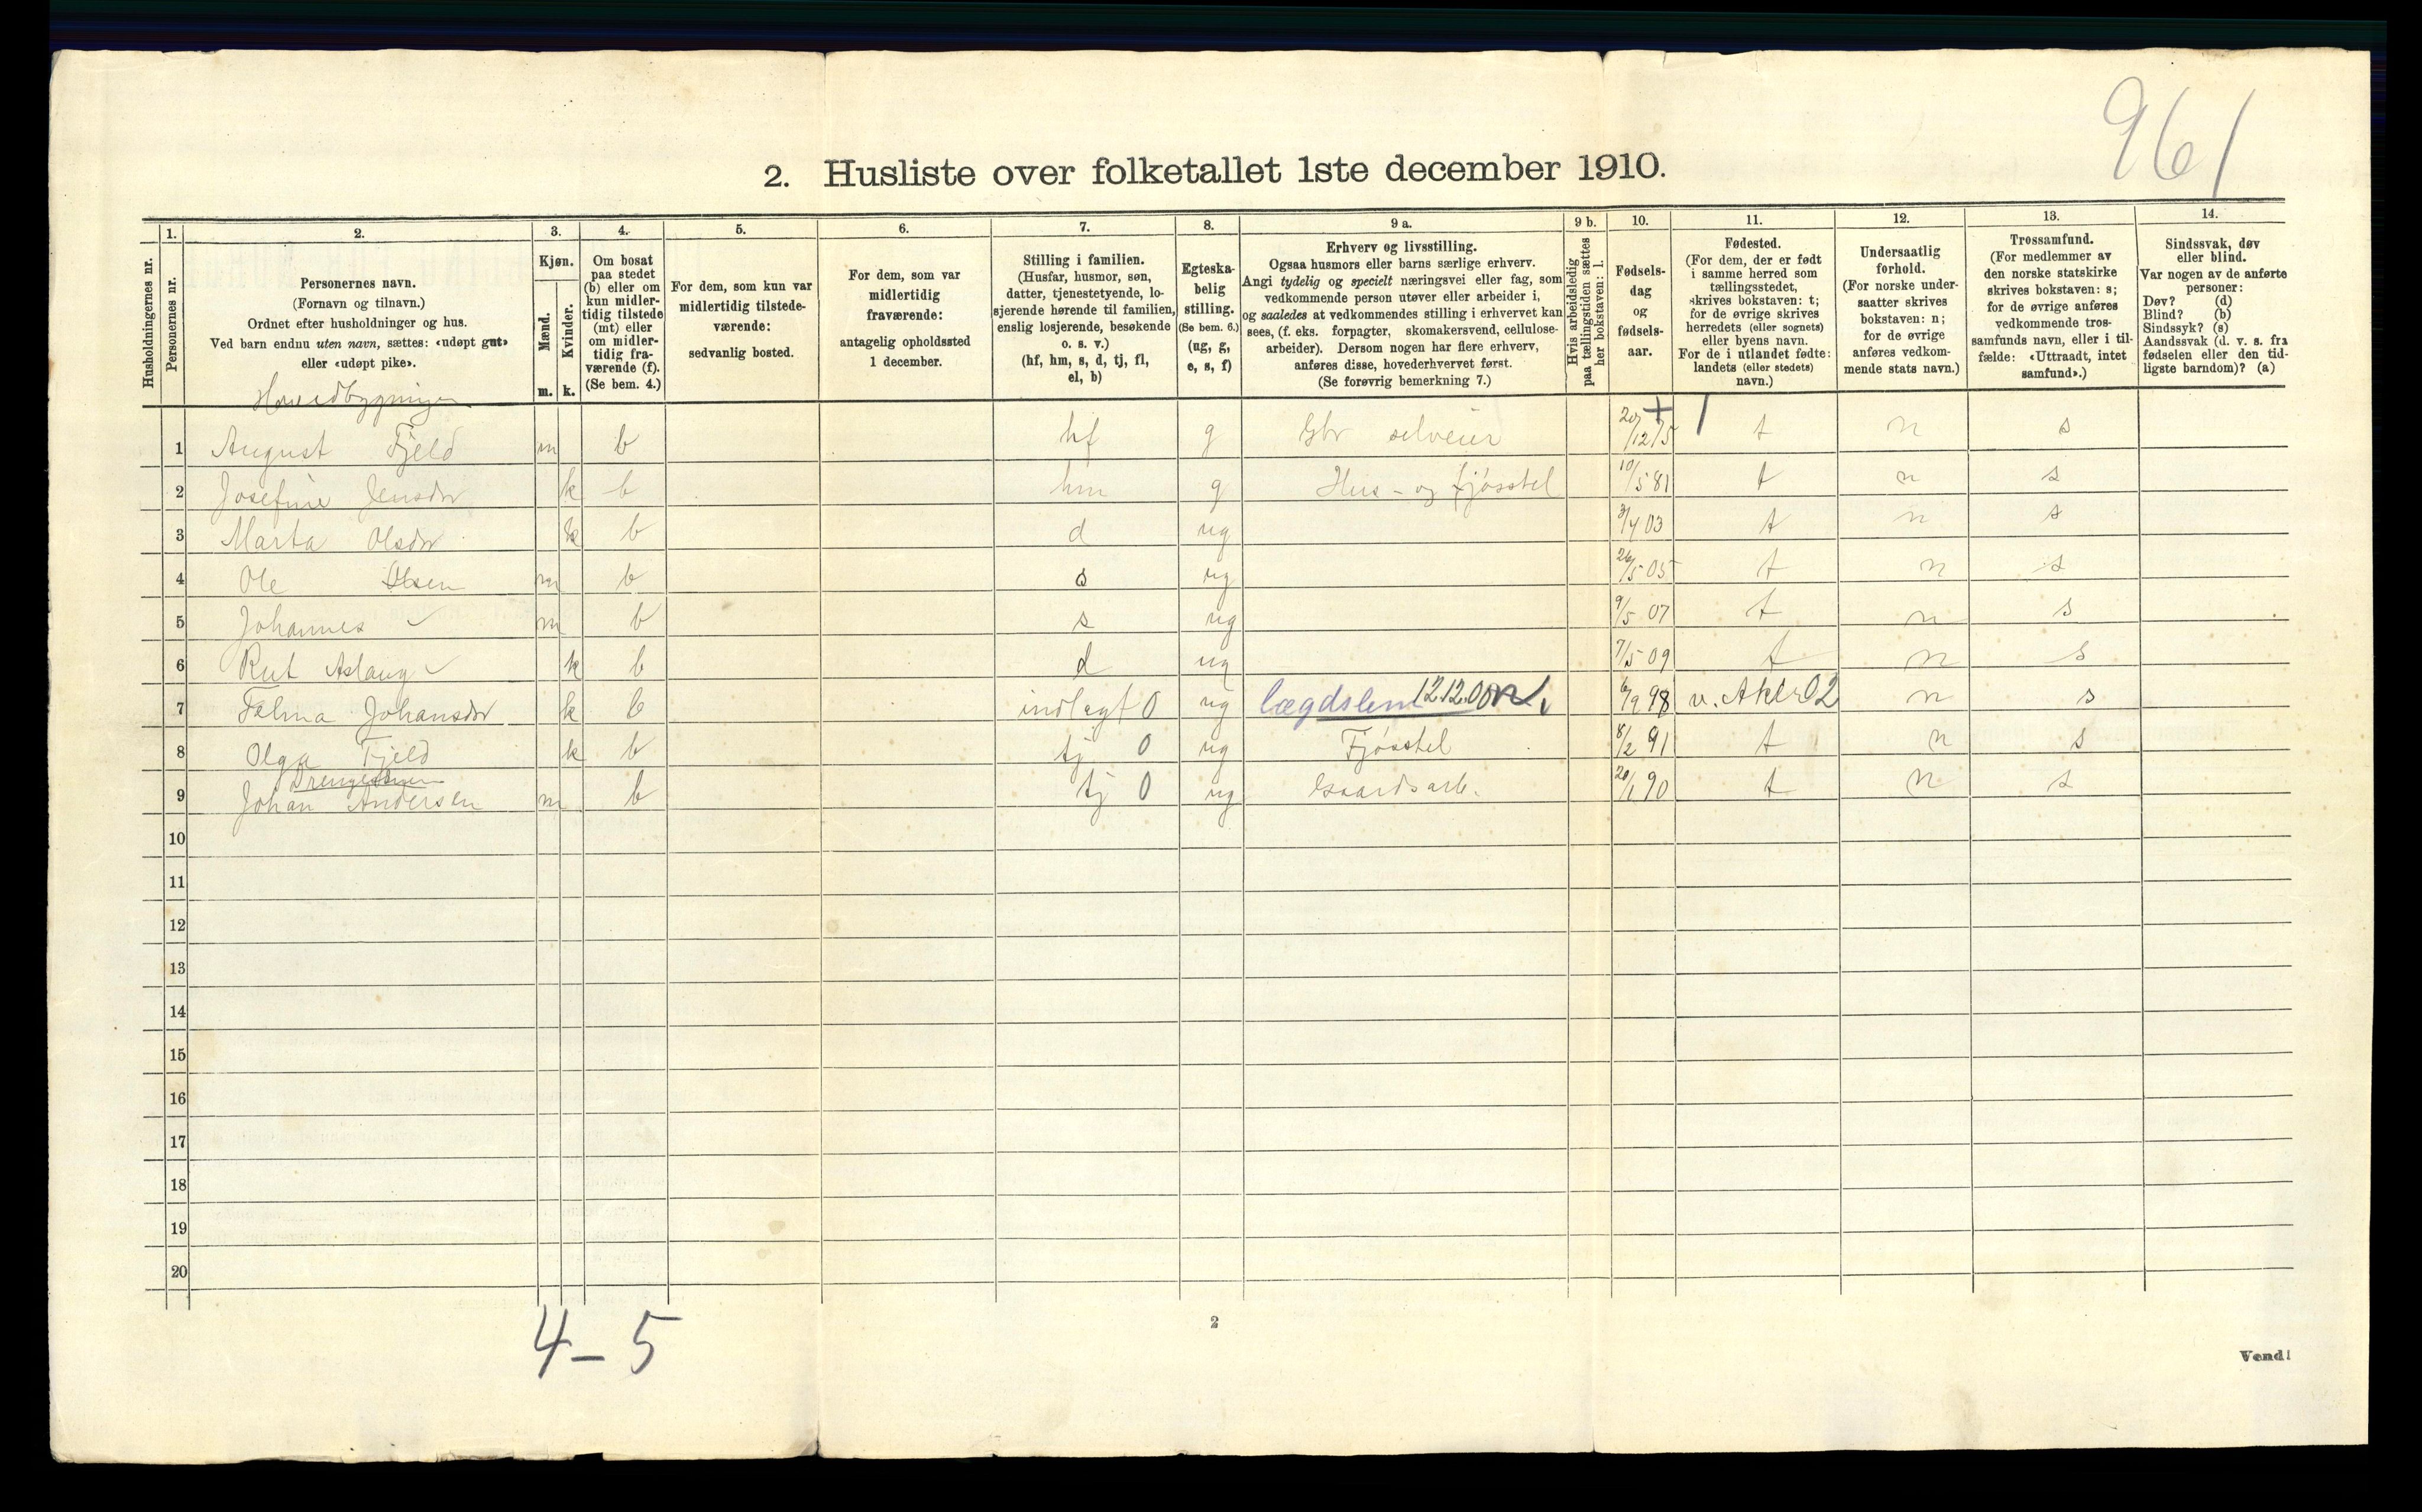 961
2. Husliste over folketallet 1ste december 1910.
Husholdningernes nr.
1.
Personernes nr.
2.
Personernes navn.
(Fornavn og tilnavn.)
Ordnet efter husholdninger og hus.
Ved barn endnu uten navn, sættes: «udøpt gut»
eller «udøpt pike».
3.
Kjøn.
Mænd.
m.
Kvinder.
k.
4.
Om bosat
paa stedet
(b) eller om
kun midler-
tidig tilstede
(mt) eller
om midler-
tidig fra-
værende (f).
(Se bem. 4.)
5.
For dem, som kun var
midlertidig tilstede-
værende:
sedvanlig bosted.
6.
For dem, som var
midlertidig
fraværende:
antagelig opholdssted
1 december.
7.
Stilling i familien.
(Husfar, husmor, søn,
datter, tjenestetyende, lo-
sjerende hørende til familien,
enslig losjerende, besøkende
o. s. v.)
(hf, hm, s, d, tj, fl,
el, b)
8.
Egteska-
belig
stilling.
(Se bem. 6.)
(ug, g,
e, s, f)
9 a.
Erhverv og livsstilling.
Ogsaa husmors eller barns særlige erhverv.
Angi tydelig og specielt næringsvei eller fag, som
vedkommende person utøver eller arbeider i,
og saaledes at vedkommendes stilling i erhvervet kan
sees, (f. eks. forpagter, skomakersvend, cellulose-
arbeider). Dersom nogen har flere erhverv,
anføres disse, hovederhvervet først.
(Se forøvrig bemerkning 7.)
9 b.
Hvis arbeidsledig
paa tællingstiden sættes
her bokstaven: l.
10.
Fødsels-
dag
og
fødsels-
aar.
11.
Fødested.
(For dem, der er født
i samme herred som
tællingsstedet,
skrives bokstaven: t;
for de øvrige skrives
herredets (eller sognets)
eller byens navn.
For de i utlandet fødte:
landets (eller stedets)
navn.)
12.
Undersaatlig
forhold.
(For norske under-
saatter skrives
bokstaven: n;
for de øvrige
anføres vedkom-
mende stats navn.)
13.
Trossamfund.
(For medlemmer av
den norske statskirke
skrives bokstaven: s;
for de øvrige anføres
vedkommende tros-
samfunds navn, eller i til-
fælde: «Uttraadt, intet
samfund».)
14.
Sindssvak, døv
eller blind.
Var nogen av de anførte
personer:
Døv? (d)
Blind? (b)
Sindssyk? (s)
Aandssvak (d. v. s. fra
fødselen eller den tid-
ligste barndom)? (a)
Hovedbygningen
1 August Fjeld m b hf g Gbr selveier 20/12 75 t n s
2 Josefine Jensdr k b hm g Hus- og fjøsstel 10/5 81 t n s
3 Marta Olsdr k b d ug 3/4 03 t n s
4 Ole Olsen m b s ug 26/5 05 t n s
5 Johannes m b s ug 9/5 07 t n s
6 Rut Aslaug k b d ug 7/5 09 t n s
7 Johansdr k b indlagt 0 ug lægdslem 12.12.00 6/9 98 v. Aker 02 n s
8 Olga Fjeld k b tj 0 ug Fjøsstel 8/2 91 t n s
Drengestuen
9 Johan Andersen m b tj 0 ug Gaardsarb. 20/1 90 t n s
10
11
12
13
14
15
16
17
18
19
20
4-5
2
Vend!